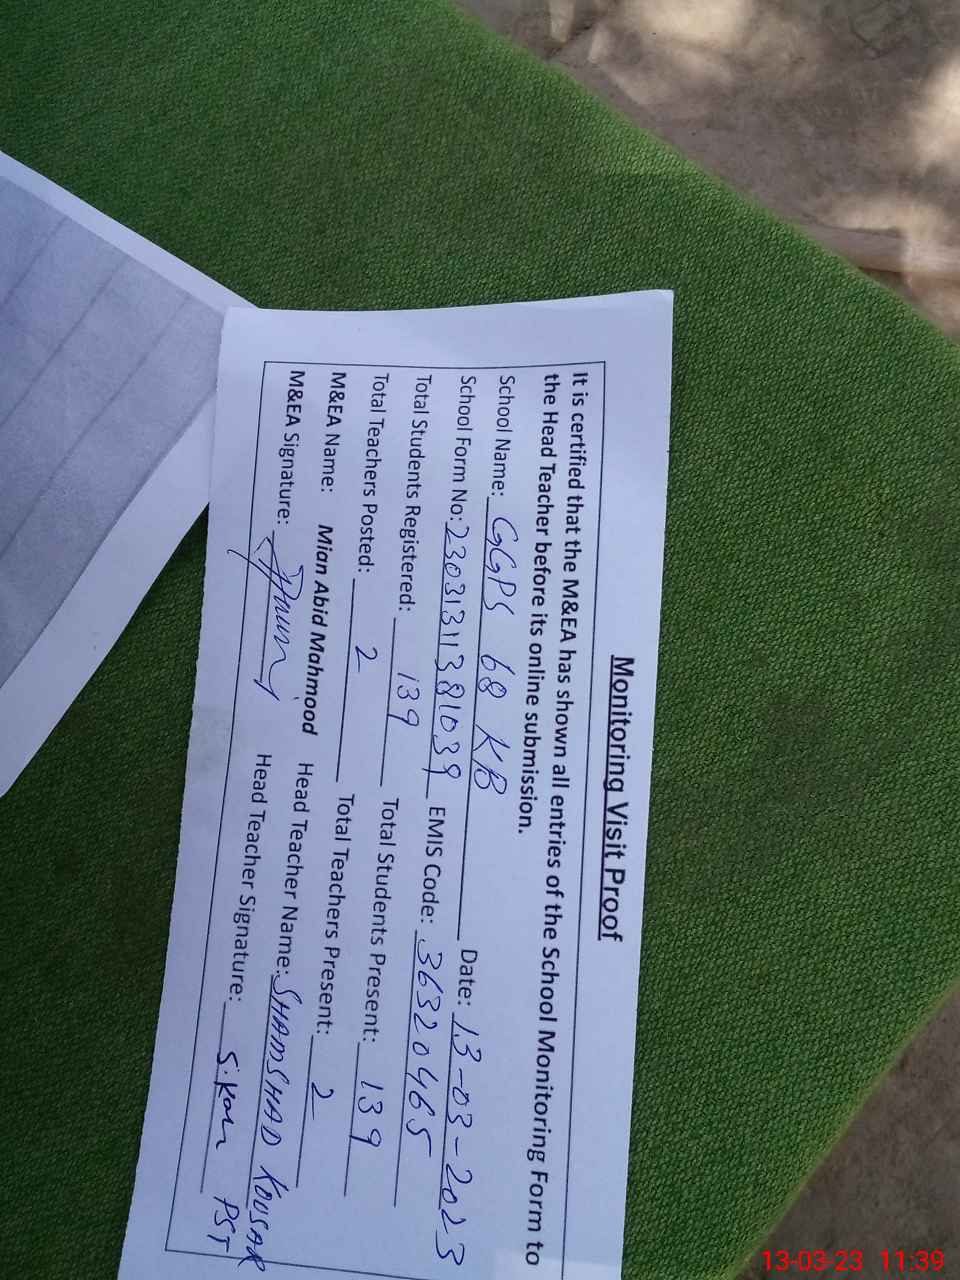 Monitoring Visit Proof
It is certified that the M&EA has shown all entries of the School Monitoring Form to
the Head Teacher before its online submission.
School Name: GGPS 68 KB Date: 13-03-2023
School Form No: 23031311381039 EMIS Code: 36320465
Total Students Registered: 139 Total Students Present: 139
Total Teachers Posted: 2 Total Teachers Present: 2
M&EA Name: Mian Abid Mahmood Head Teacher Name: SHAMSHAD KOUSAR
M&EA Signature: Head Teacher Signature: PST
13-03-23 11:39